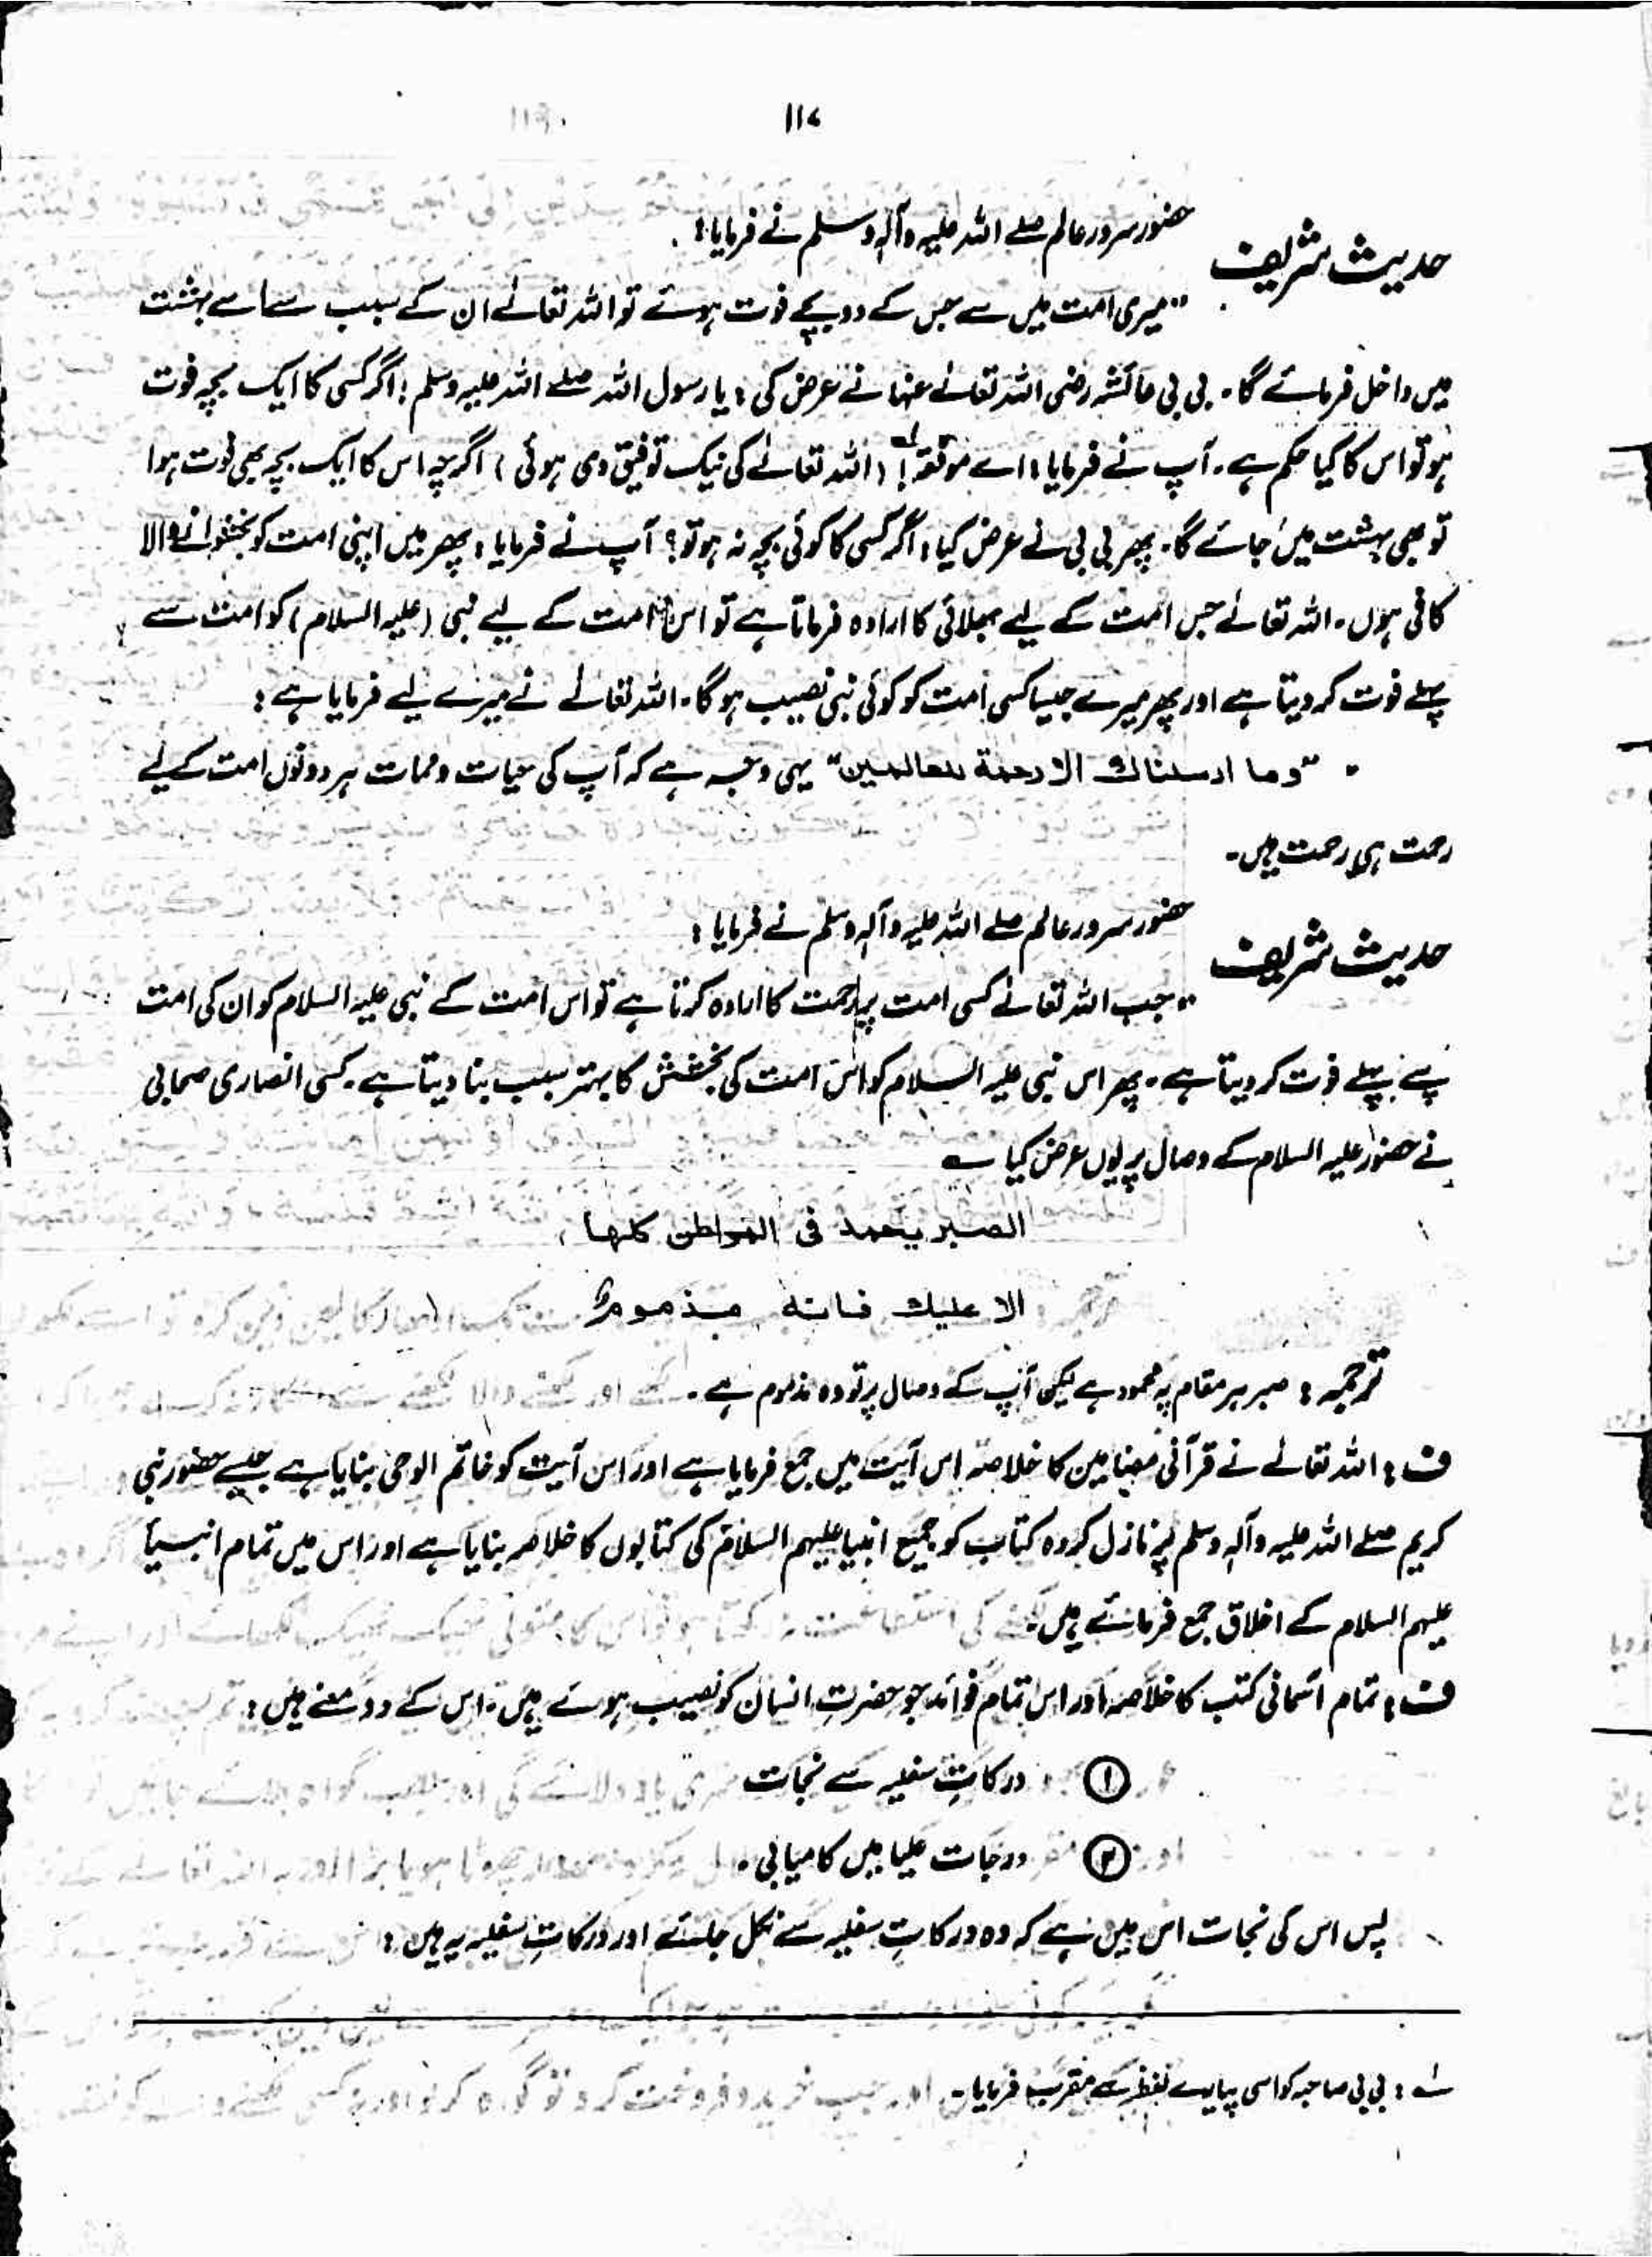 ۱۱۷
حدیث شریف
حضور سرور عالم صلے اللہ علیہ وآلہٖ وسلم نے فرمایا:
"میری امت میں سے جس کے دو بچے فوت ہوئے تو اللہ تعالےٰ ان کے سبب سے اسے بہشت
میں داخل فرمائے گا۔ بی بی عائشہ رضی اللہ تعالےٰ عنہا نے عرض کی: یا رسول اللہ صلے اللہ علیہ وسلم! اگر کسی کا ایک بچہ فوت
ہو تو اس کا کیا حکم ہے۔ آپ نے فرمایا: اے موفقہ! (اللہ تعالےٰ کی نیک توفیق دی ہوئی) اگرچہ اس کا ایک بچہ بھی فوت ہوا
تو بھی بہشت میں جائے گا۔ پھر بی بی نے عرض کیا: اگر کسی کا کوئی بچہ نہ ہو تو؟ آپ نے فرمایا: پھر میں اپنی امت کو بخشوانے والا
کافی ہوں۔ اللہ تعالےٰ جس امت کے لیے بھلائی کا ارادہ فرماتا ہے تو اس امت کے لیے نبی (علیہ السلام) کو امت سے
پہلے فوت کر دیتا ہے اور پھر میرے جیسا کسی امت کو کوئی نبی نصیب ہو گا۔ اللہ تعالےٰ نے میرے لیے فرمایا ہے:
"وما ارسلناك الا رحمة للعالمين" یہی وجہ ہے کہ آپ کی حیات و ممات ہر دونوں امت کے لیے
رحمت ہی رحمت ہیں۔
حدیث شریف
حضور سرور عالم صلے اللہ علیہ وآلہٖ وسلم نے فرمایا:
"جب اللہ تعالےٰ کسی امت پر رحمت کا ارادہ کرتا ہے تو اس امت کے نبی علیہ السلام کو ان کی امت
سے پہلے فوت کر دیتا ہے۔ پھر اس نبی علیہ السلام کو اس امت کی بخشش کا بہتر سبب بنا دیتا ہے۔ کسی انصاری صحابی
نے حضور علیہ السلام کے وصال پر یوں عرض کیا ؎
الصبر يحمد فى المواطن كلها
الا عليك فانه مذموم
ترجمہ: صبر ہر مقام پہ محمود ہے لیکن آپ کے وصال پر تو وہ مذموم ہے۔
ف: اللہ تعالےٰ نے قرآنی مضامین کا خلاصہ اس آیت میں جمع فرمایا ہے اور اس آیت کو خاتم الوحی بنایا ہے جیسے حضور نبی
کریم صلے اللہ علیہ وآلہٖ وسلم پر نازل کردہ کتاب کو جمیع انبیا علیہم السلام کی کتابوں کا خلاصہ بنایا ہے اور اس میں تمام انبیأ
علیہم السلام کے اخلاق جمع فرمائے ہیں۔
ف: تمام آسمانی کتب کا خلاصہ اور اس تمام فوائد جو حضرتِ انسان کو نصیب ہوئے ہیں۔ اس کے دو معنے ہیں:
① درکاتِ سفلیہ سے نجات
② درجات علیا میں کامیابی۔
پس اس کی نجات اس میں ہے کہ وہ درکاتِ سفلیہ سے نکل جائے اور درکاتِ سفلیہ یہ ہیں:
لے: بی بی صاحبہ کو اسی پیارے لفظ سے مقرب فرمایا۔